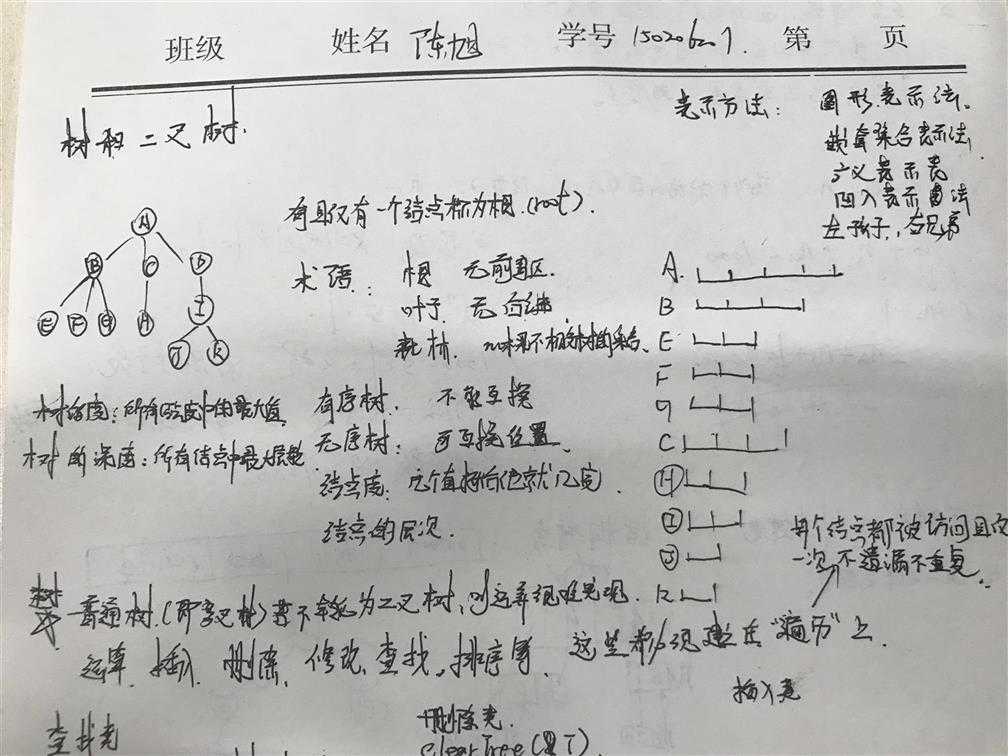 班级 姓名 陈旭 学号 第 页
树和二叉树.
表示方法: 图形表示法.
嵌套集合表示法
广义表示表
凹入表示法
左孩子,右兄弟
有且仅有一个结点称为根.(root).
A
B C D
E F G H I
J K
术语: 根 无前驱.
叶子 无后继
森林.
有序树. 不能互换
无序树: 可互换位置.
结点度: 几个直接后继就几度.
结点的层次.
树的度:所有结点度中的最大值
树的深度:所有结点中最大层数
A.
B
E
F
G
C
H
I
J
K
每个结点都被访问且仅
一次,不遗漏不重复.
普通树.(即多叉树)若不转化为二叉树,则运算很难实现.
运算.插入 删除、修改、查找,排序等. 这些都必须建立在"遍历"上.
插入克
删除克.
查找克
ClearTree(&T).